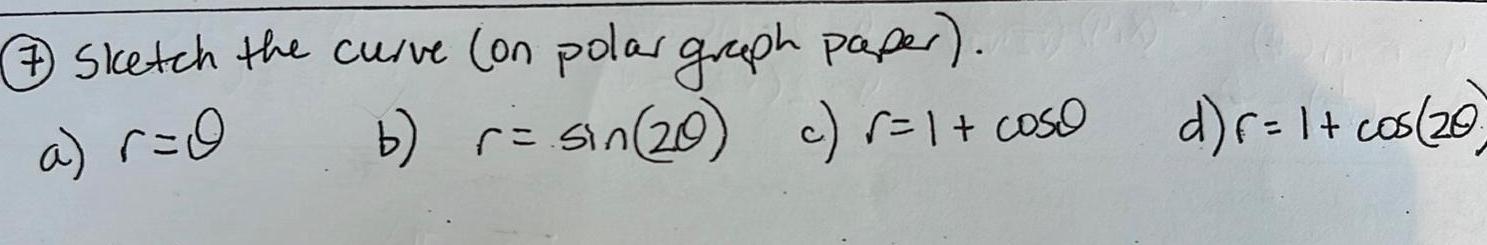 ⑦ Sketch the curve (on polar graph paper).
a) r=θ b) r= sin(2θ) c) r=1+ cosθ d) r= 1+ cos(2θ)